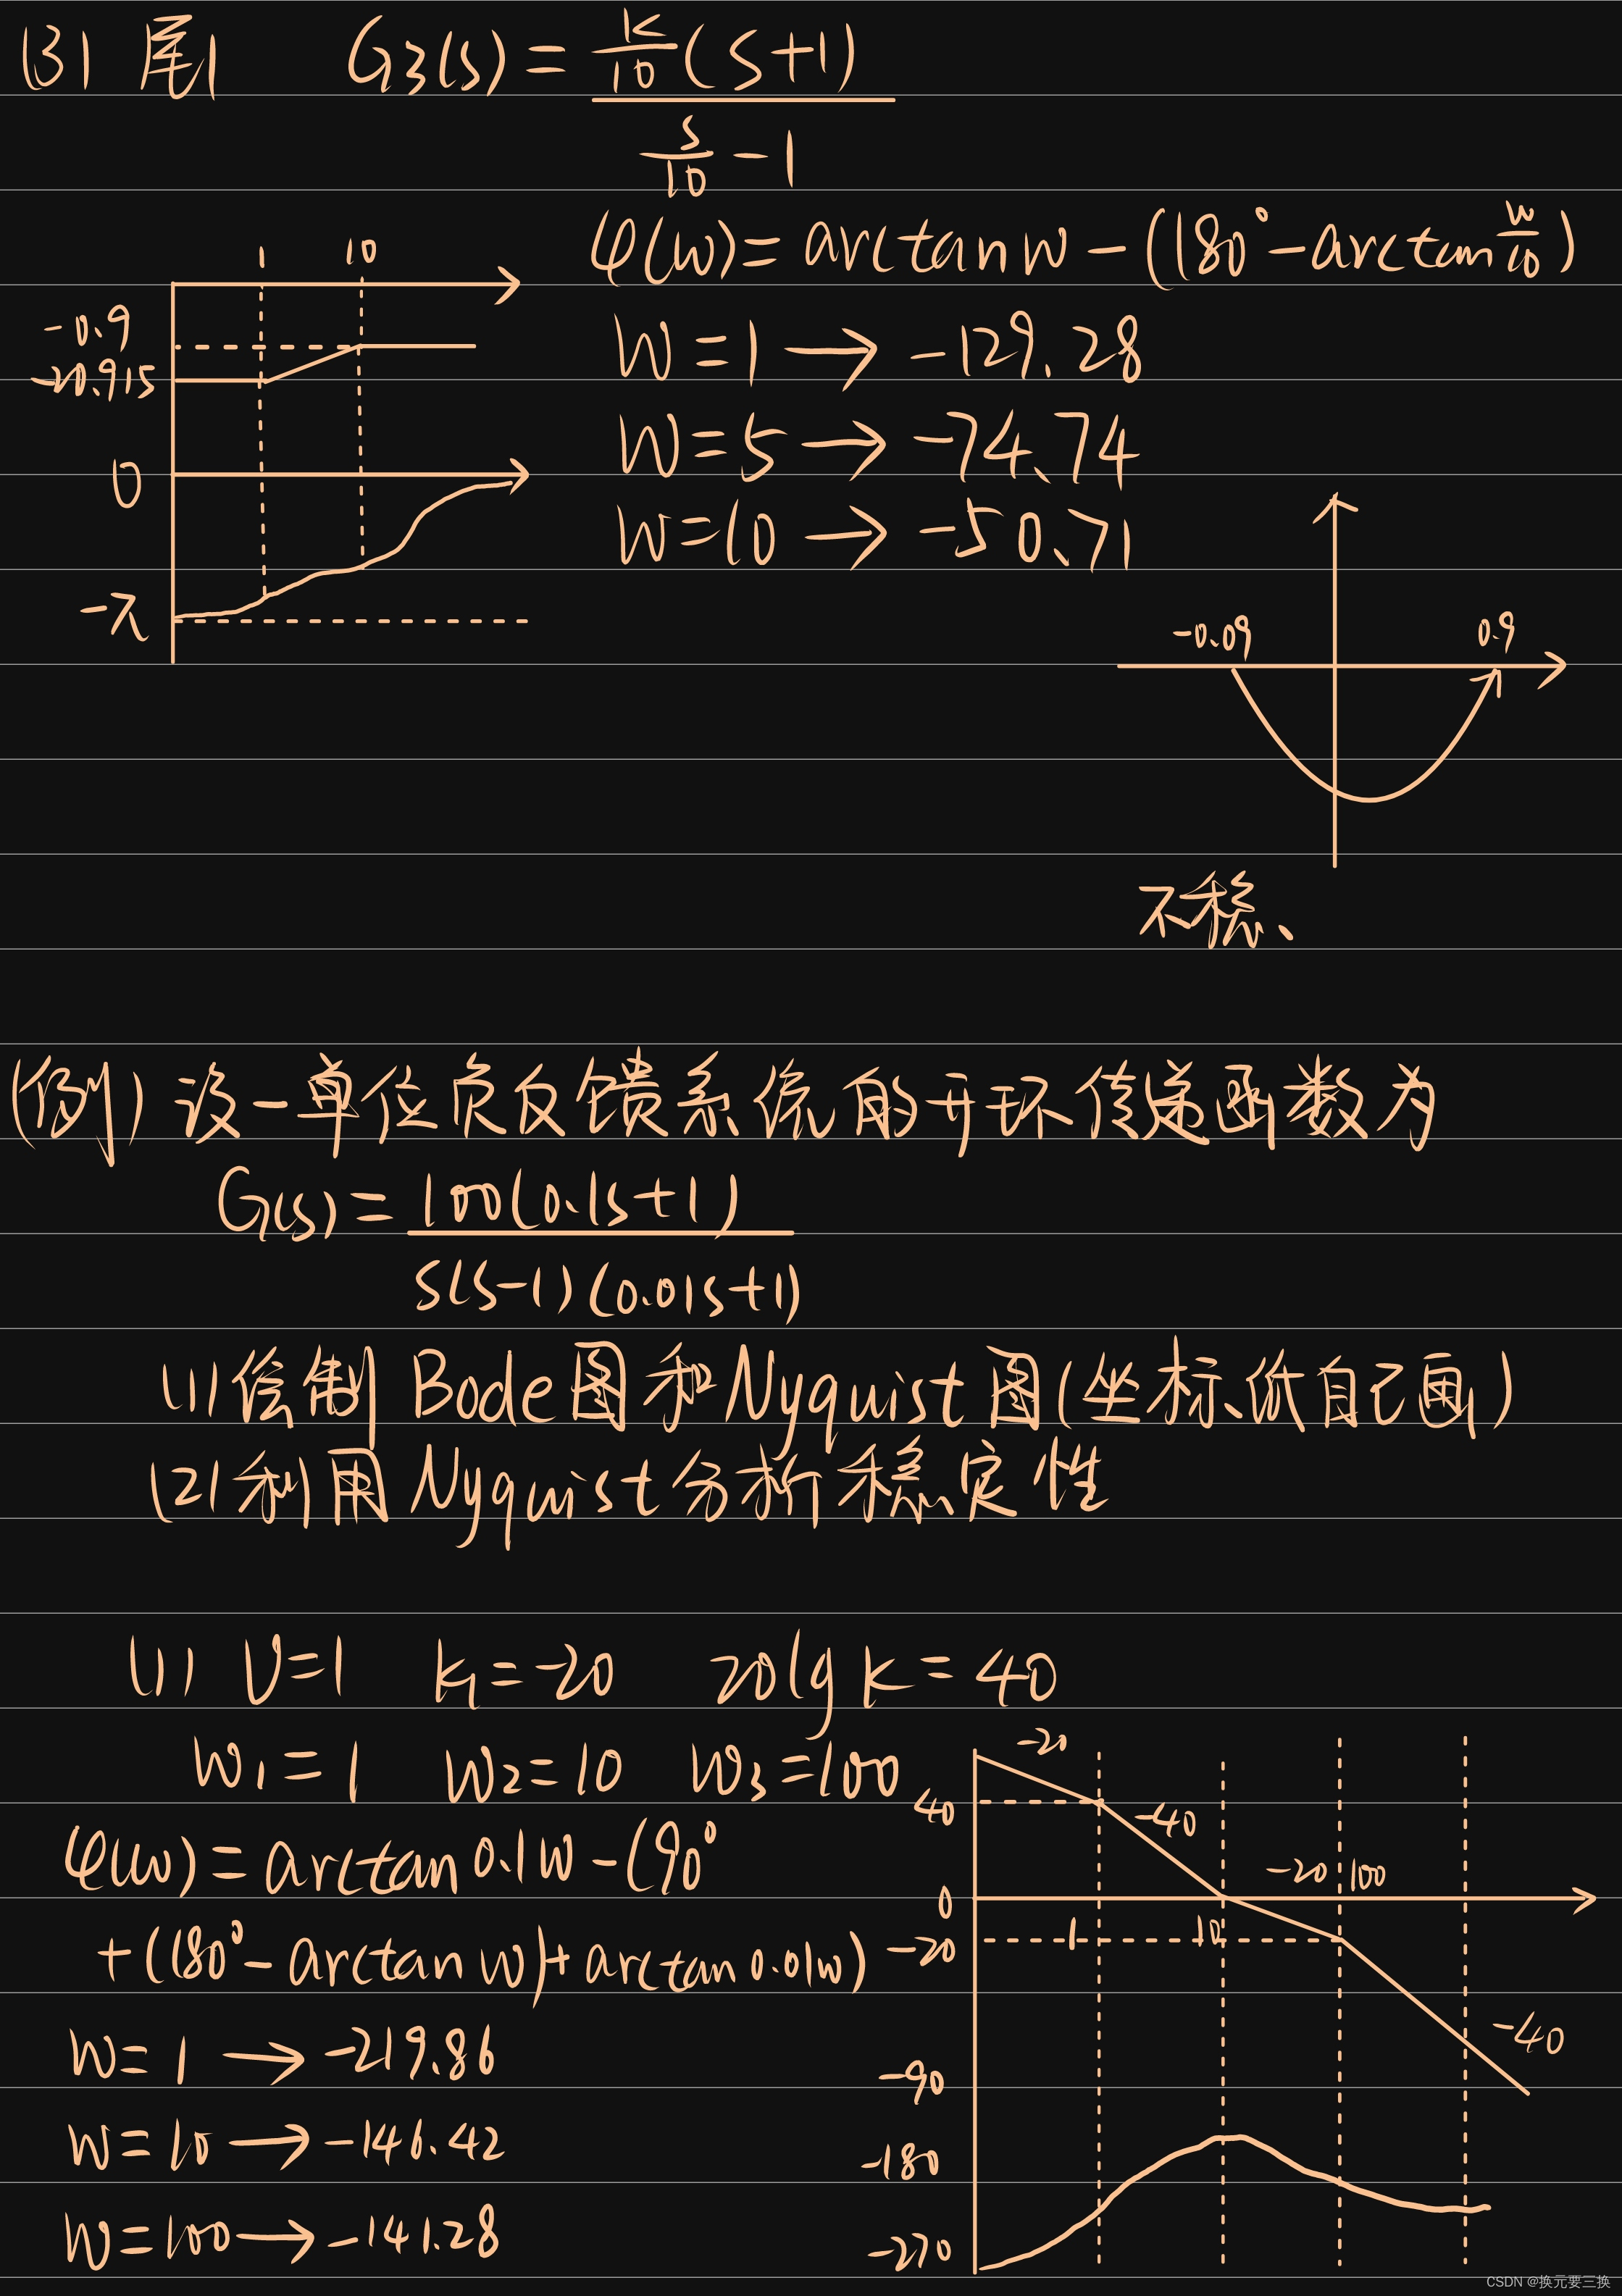 (3) 尾1 G3(s) = K/10 (s+1)
s/10 - 1
φ(w) = arctan w - (180° - arctan w/10)
1 10
-0.9
-20.915
w=1 → -129.28
w=5 → -74.74
0
w=10 → -50.71
-π
-0.09 0.9
不稳、
(例) 设一单位负反馈系统的开环传递函数为
G(s) = 100(0.1s+1)
s(s-1)(0.01s+1)
(1) 绘制Bode图和Nyquist图(坐标、纸自己画)
(2) 利用Nyquist分析稳定性
(1) V=1 k1=-20 20lg k=40
w1=1 w2=10 w3=100
-20
40
-40
φ(w) = arctan 0.1w - (90°
-20 100
0
+ (180° - arctan w) + arctan 0.01w)
1 10
-20
w=1 → -219.86
-40
-90
w=10 → -146.42
-180
w=100 → -141.28
-270
CSDN @换元要三换